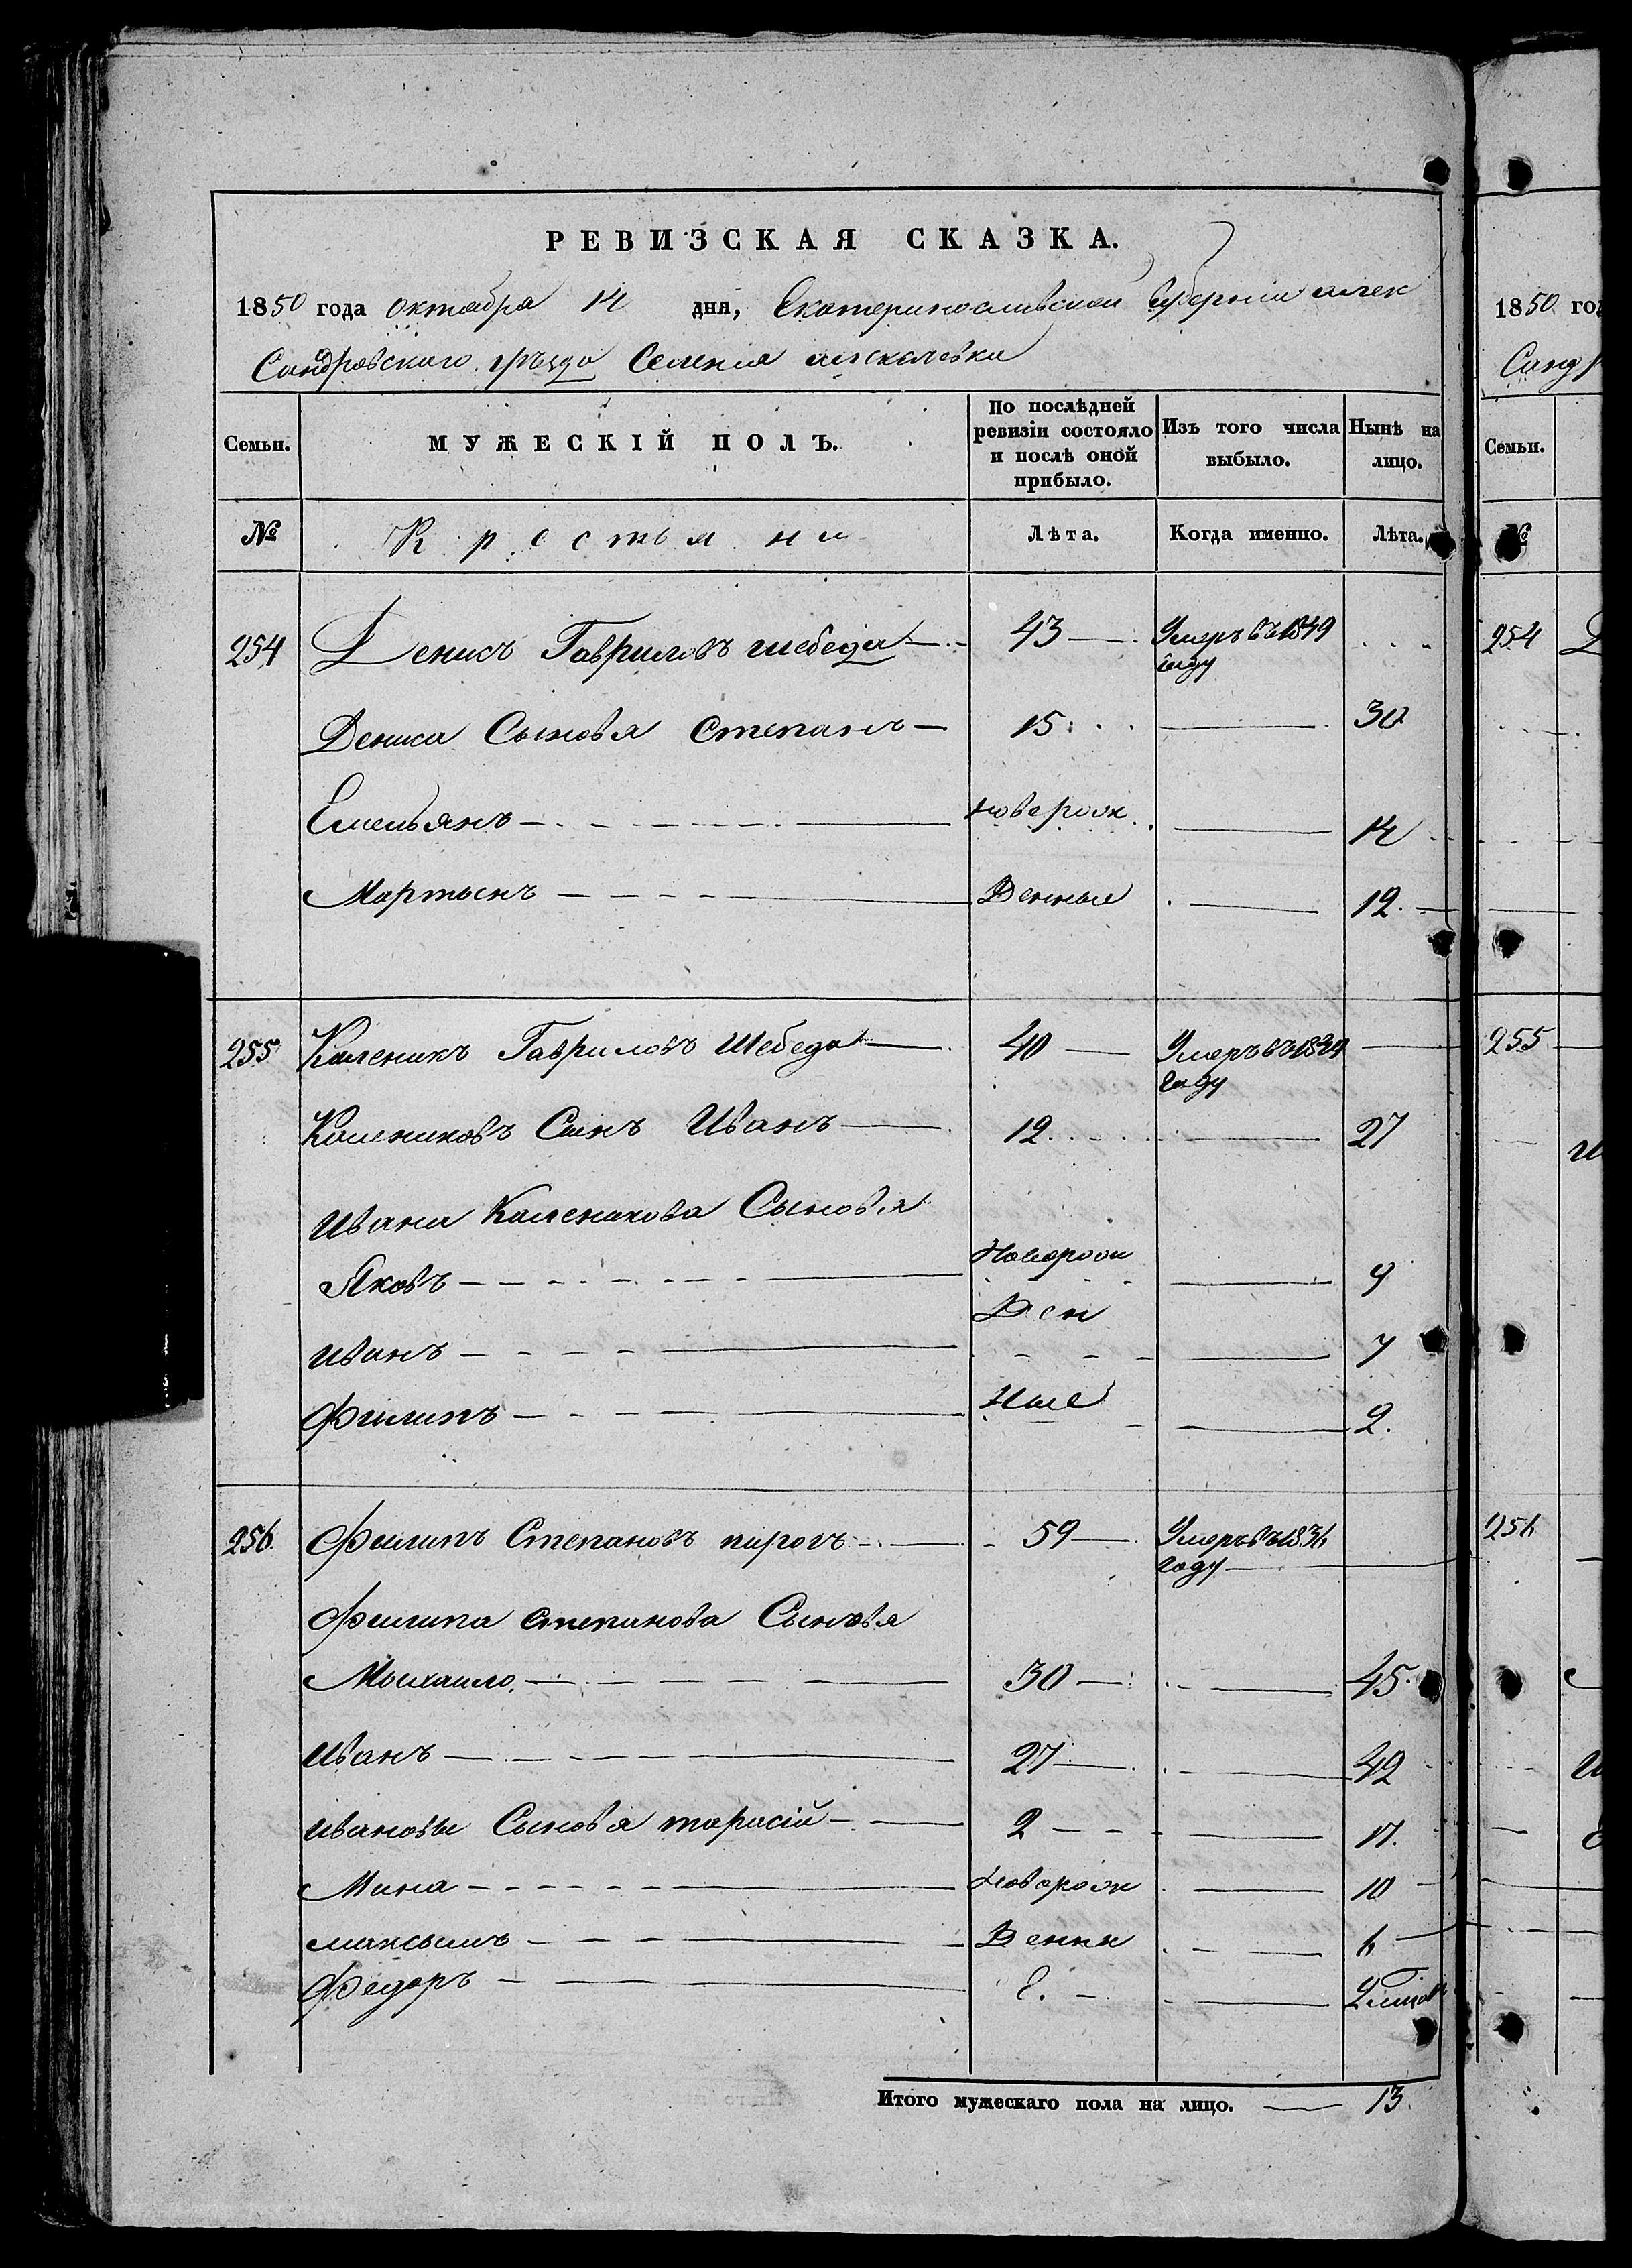 РЕВИЗСКАЯ СКАЗКА.
1850 года октября 14 дня, Екатеринославской Губернии алек
Сандровского уѣзда Селения
Семьи. МУЖЕСКІЙ ПОЛЪ. По послѣдней ревизіи состояло и послѣ оной прибыло. Изъ того числа выбыло. Нынѣ на лицо.
№ Крестьяни Лѣта. Когда именно. Лѣта.
254 Денисъ Гавриловъ шебеда 43 Умеръ въ 1849
году
Дениса Сыновья Степанъ 15 30
Емельянъ новорож 14
Мартынъ Денные 12.
255 Каленикъ Гавриловъ Шебеда 40 Умеръ въ
году
Калениковъ Сынъ Иванъ 12 27
Ивана Каленикова Сыновья
Яковъ Новорож 9
Ден
Иванъ 7
Филипъ Ные 2.
256. Филипъ Степановъ пирогъ 59 Умеръ въ 1836
году
Филипа Степанова Сыновья
Мыхаило 30 45.
Иванъ 27 42
Ивановы Сыновья тарасій 2 17.
Мина Новорож 10
максымъ Денны 6
Федоръ Е. 2
Итого мужескаго пола на лицо. 13.
1850 год
Санд
Семьи.
№
254 Д
255
И
256
И